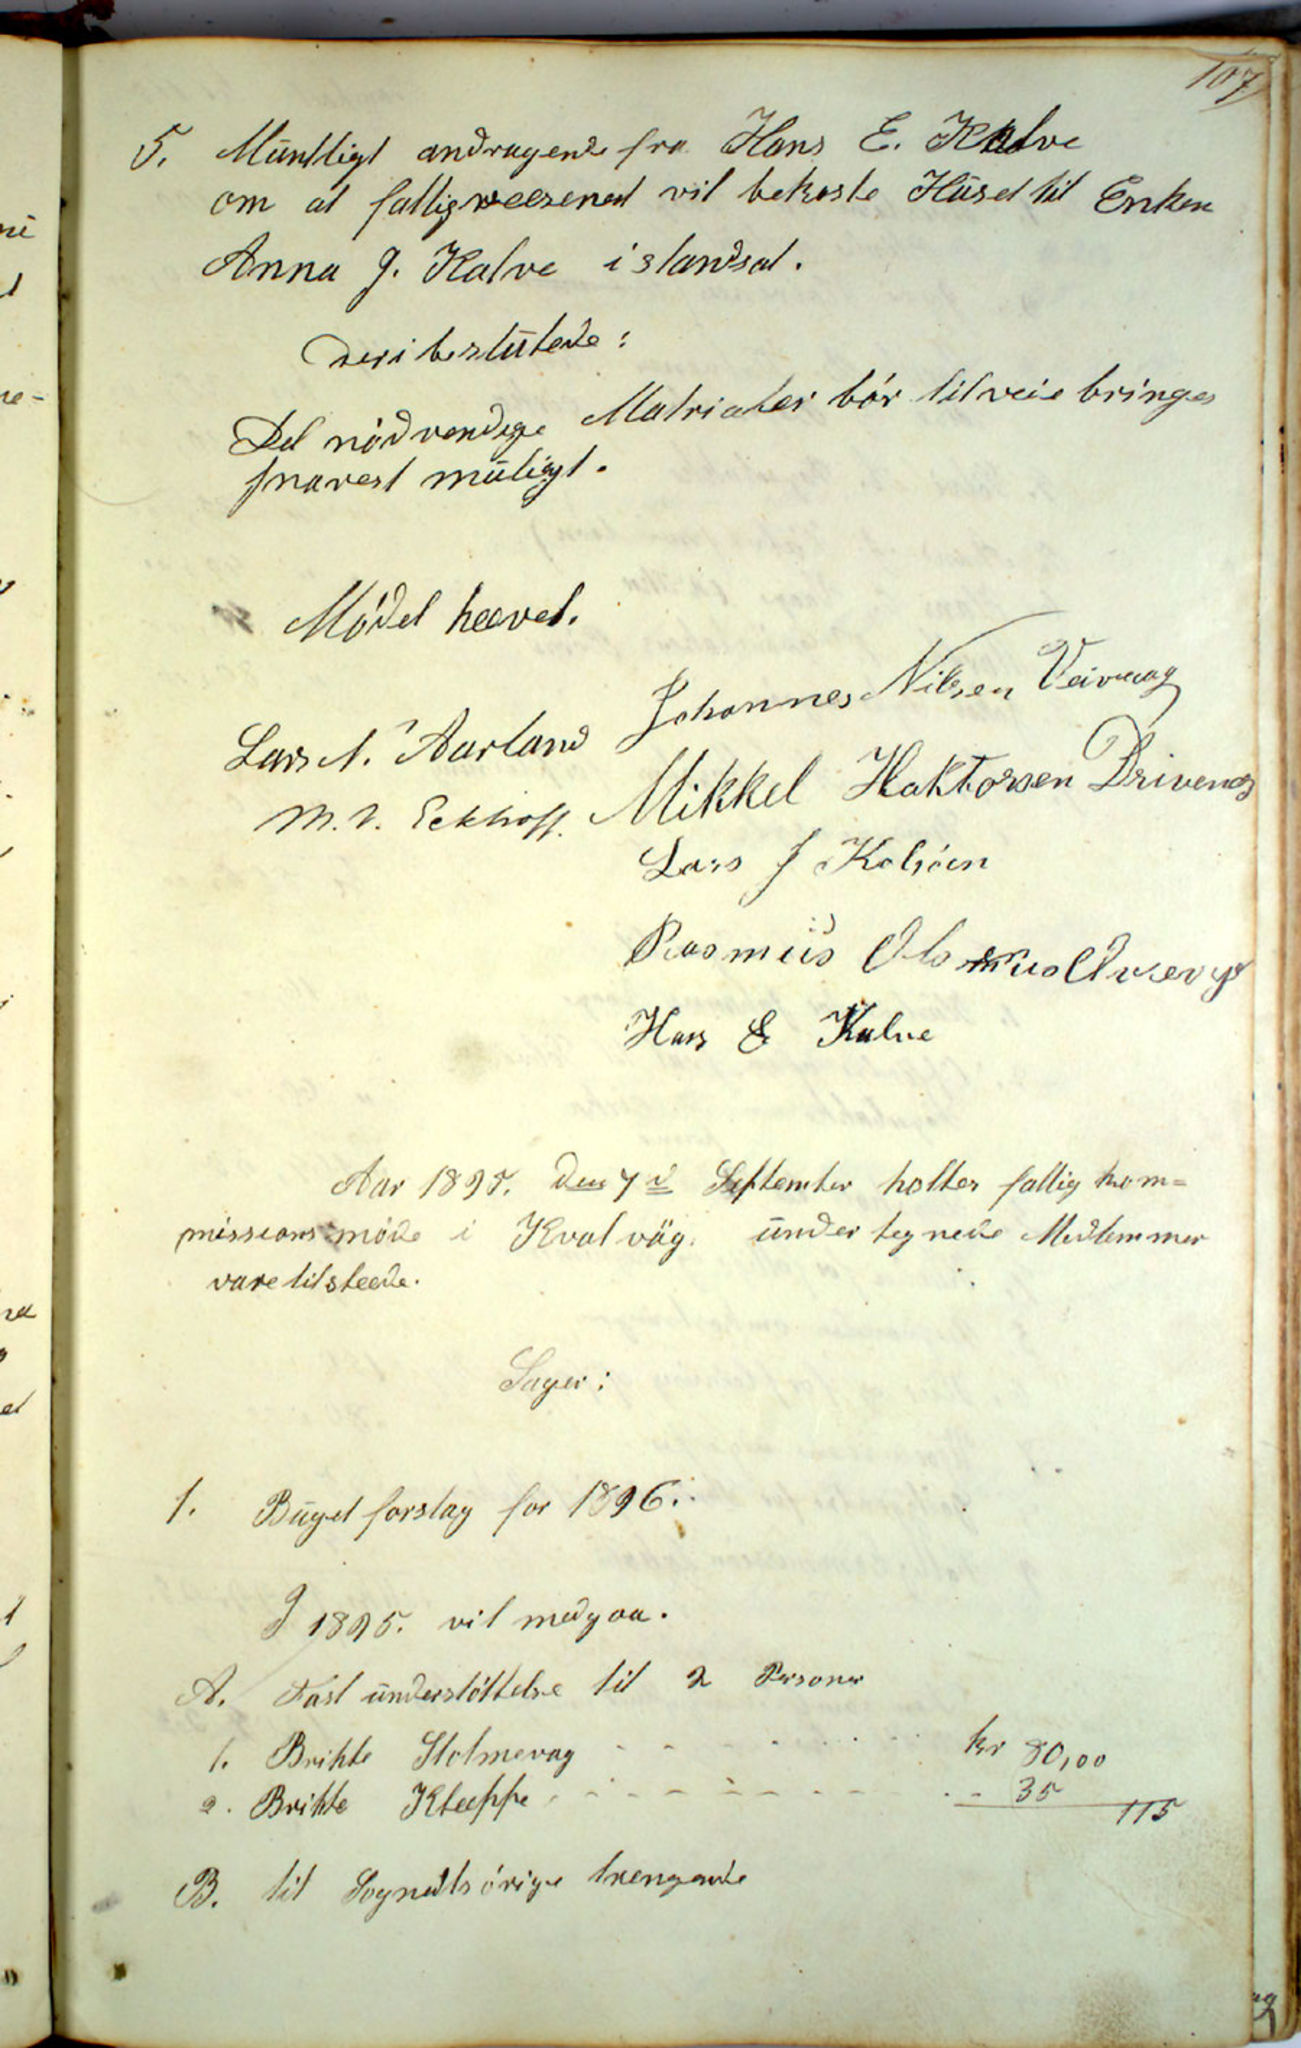 107
5. Mündtligt andragende fra Hans E. Kalve
om at fattigveesenet vil bekoste Hüset til Enken
Anna J. Kalve istandsat.
Deri beslütede:
Det nödvendige Matrialer bör tilveie bringes
snarest müligt.
Mödet heevet.
Johannes Nilsen Veivaag
Lars N. Aarland
Mikkel Haktorsen Drivenes
M. N. Eckhoff.
Lars J Kolsöen
Rasmus Olsen
Hans E Kalve
Aar 1895. den 7de September holtes fattig kom=
missions möde i Kvalvåg. ündertegnede Medlemmer
vare tilsteede.
Sager:
1. Büget forslag for 1896.
I 1895. vil medgaa.
A. Fast ünderstöttelse til 2 Personer
1. Brihte Stolmevag - - - - - kr 80,00
2. Brihte Kleppe - - - - - - - - 35 115
B. til Sognets örige trengende